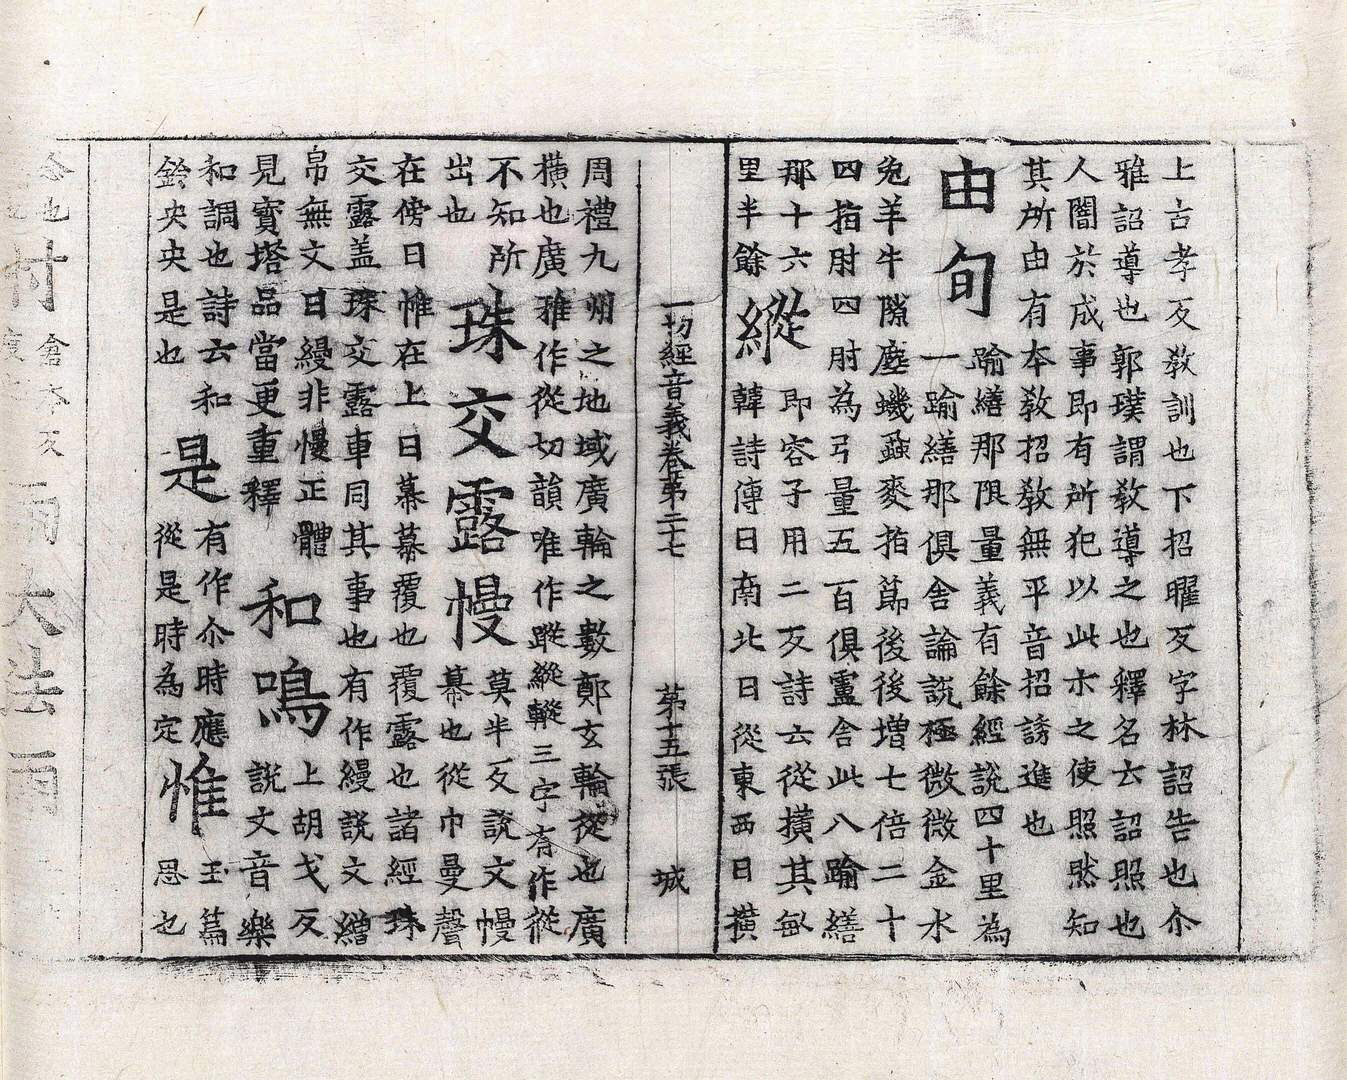 上古孝反教訓也下招曜反字林詔告也尒
雅詔導也郭璞謂教導之也釋名云詔照也
人闇於成事即有所犯以此示之使照然知
其所由有本教招教無平音招誘進也
由旬 踰繕那限量義有餘經說四十里為
一踰繕那俱舍論說極微微金水
兔羊牛隙塵蟣蝨麥指節後後增七倍二十
四指肘四肘為弓量五百俱盧舍此八踰繕
那十六
里半餘 縱 即容子用二反詩云從橫其畝
韓詩傳曰南北曰從東西曰橫
一切經音義卷第二十七 第十五張 城
周禮九州之地域廣輪之數鄭玄輪從也廣
橫也廣雅作從切韻唯作蹤縱轍三字有作從
不知所
出也 珠交露幔 莫半反說文幔
幕也從巾曼聲
在傍曰帷在上曰幕幕覆也覆露也諸經珠
交露盖珠交露車同其事也有作縵說文繒
帛無文曰縵非慢正體
見寶塔品當更重釋 和鳴 上胡戈反
說文音樂
和調也詩云和
鈴央央是也 是 有作尒時應
從是時為定 惟 玉篇
思也